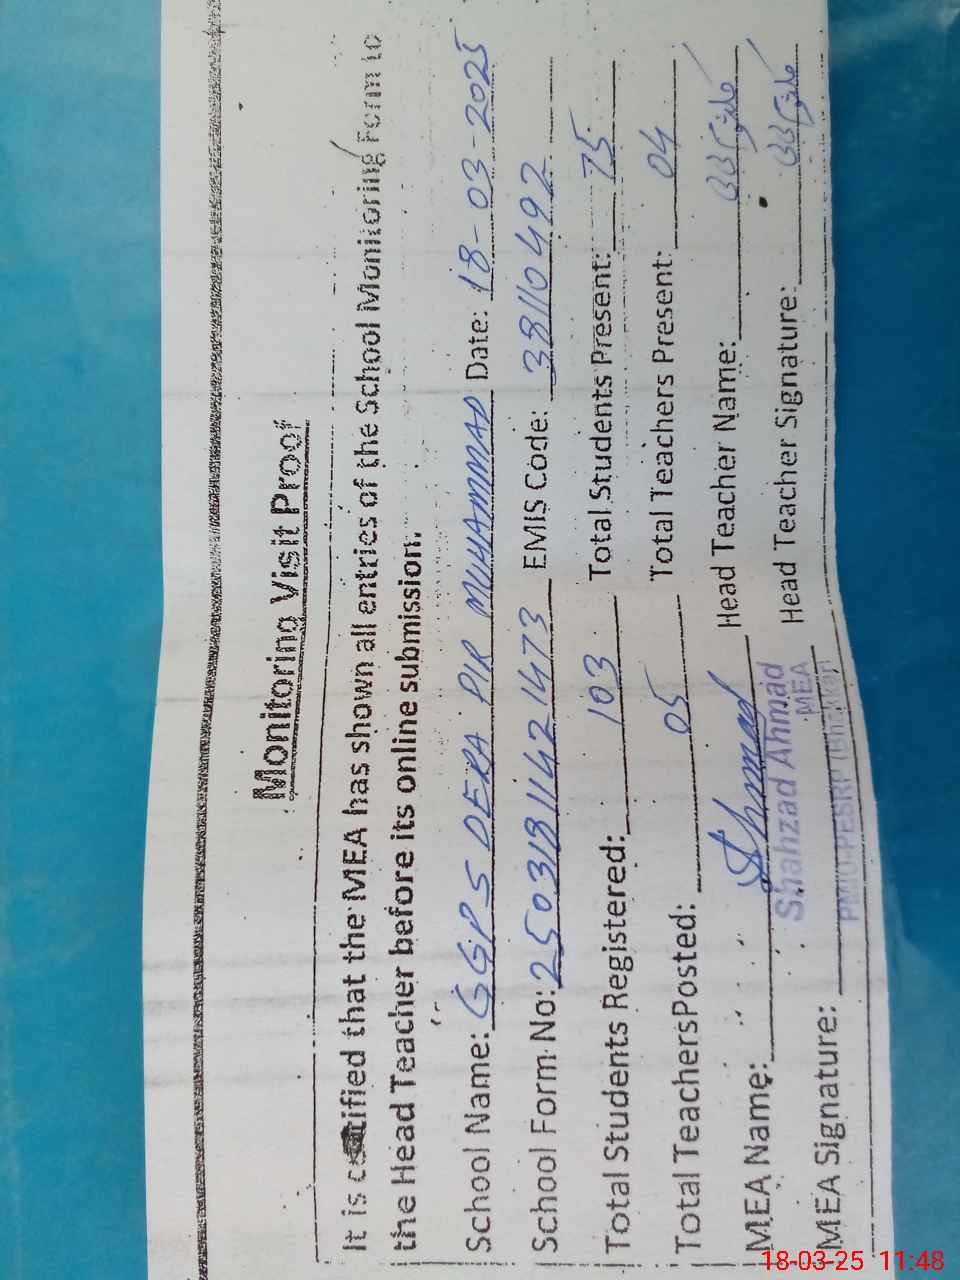 Monitoring Visit Proof
It is certified that the MEA has shown all entries of the School Monitoring Form to
the Head Teacher before its online submission.
School Name: GGPS DERA PIR MUHAMMAD Date: 18-03-2025
School Form No: 25031811421473 EMIS Code: 38110492
Total Students Registered: 103 Total Students Present: 75
Total TeachersPosted: 05 Total Teachers Present: 04
MEA Name: Head Teacher Name:
Shahzad Ahmad
MEA
MEA Signature: Head Teacher Signature:
PMIU-PESRP (Bhakkar)
18-03-25 11:48